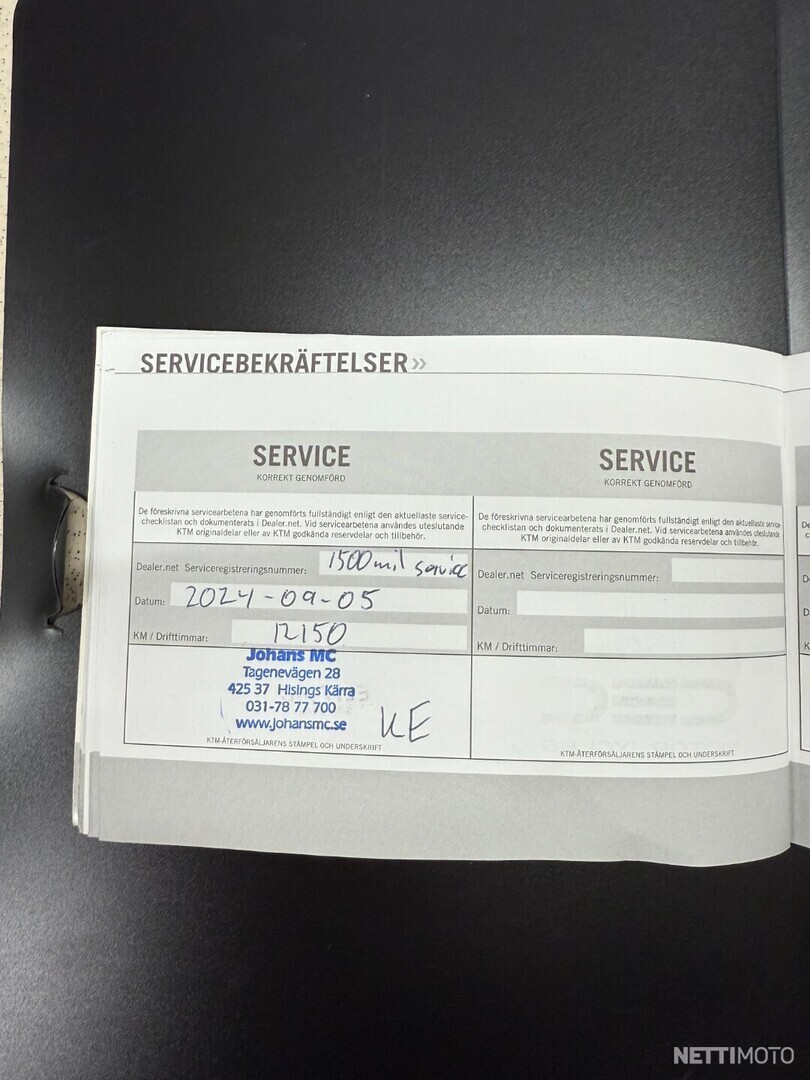 SERVICEBEKRÄFTELSER»
SERVICE
KORREKT GENOMFÖRD
De föreskrivna servicearbetena har genomförts fullständigt enligt den aktuellaste service-
checklistan och dokumenterats i Dealer.net. Vid servicearbetena användes uteslutande
KTM originaldelar eller av KTM godkända reservdelar och tillbehör.
Dealer.net Serviceregistreringsnummer: 1500mil service
Datum: 2024-09-05
KM / Drifttimmar: 12150
Johans MC
Tagenevägen 28
425 37 Hisings Kärra
031-78 77 700
www.johansmc.se
KE
KTM-ÅTERFÖRSÄLJARENS STÄMPEL OCH UNDERSKRIFT
SERVICE
KORREKT GENOMFÖRD
De föreskrivna servicearbetena har genomförts fullständigt enligt den aktuellaste service-
checklistan och dokumenterats i Dealer.net. Vid servicearbetena användes uteslutande
KTM originaldelar eller av KTM godkända reservdelar och tillbehör.
Dealer.net Serviceregistreringsnummer:
Datum:
KM / Drifttimmar:
KTM-ÅTERFÖRSÄLJARENS STÄMPEL OCH UNDERSKRIFT
NETTIMOTO